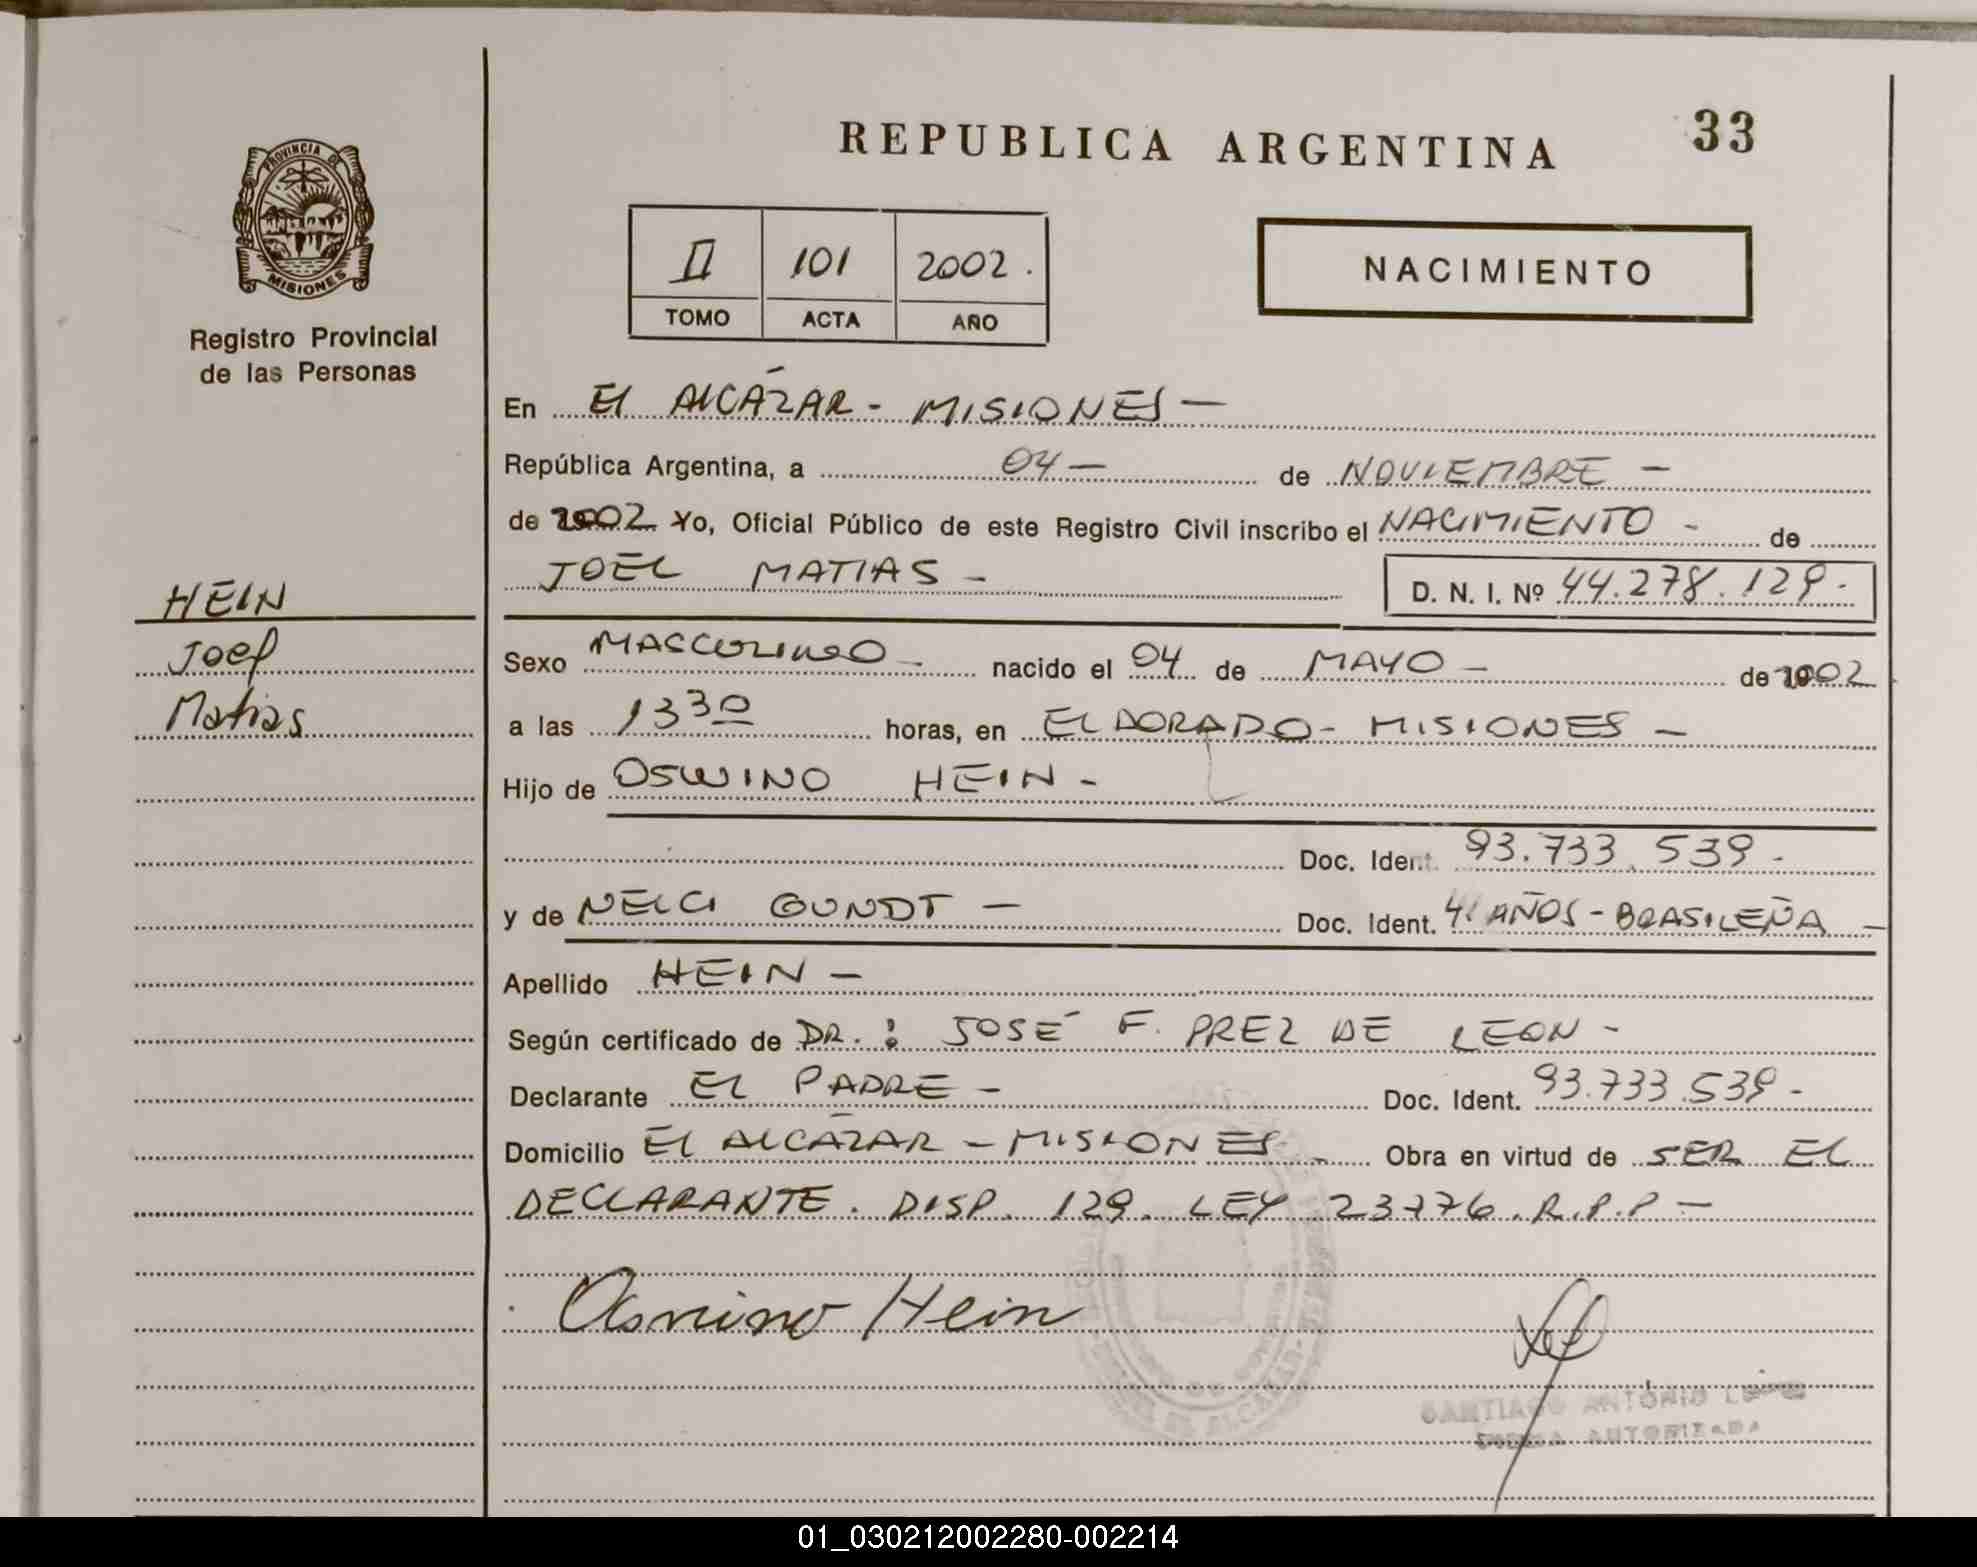 REPUBLICA ARGENTINA 33
PROVINCIA DE
MISIONES
Registro Provincial
de las Personas
II 101 2002.
TOMO ACTA AÑO
NACIMIENTO
En El AlCÁZAR - MISIONES -
República Argentina, a 04 - de NOVIEMBRE -
de 2002 Yo, Oficial Público de este Registro Civil inscribo el NACIMIENTO - de
JOEL MATIAS - D. N. I. Nº 44.278.129.-
HEIN
Joel
Matias
Sexo MASCULINO - nacido el 04 de MAYO - de 2002
a las 1330 horas, en ELDORADO - MISIONES -
Hijo de OSWINO HEIN -
Doc. Ident. 93.733.539.-
y de NELCI GUNDT - Doc. Ident. 41 AÑOS - BRASILEÑA -
Apellido HEIN -
Según certificado de DR.: JOSÉ F. PREZ DE LEON -
Declarante EL PADRE - Doc. Ident. 93.733.539 -
Domicilio El AlCÁZAR - MISIONES - Obra en virtud de SER EL
DECLARANTE. DISP. 129. LEY 23776. R.P.P -
Oswino Hein
SANTIAGO ANTONIO
FIRMA AUTORIZADA
01_030212002280-002214